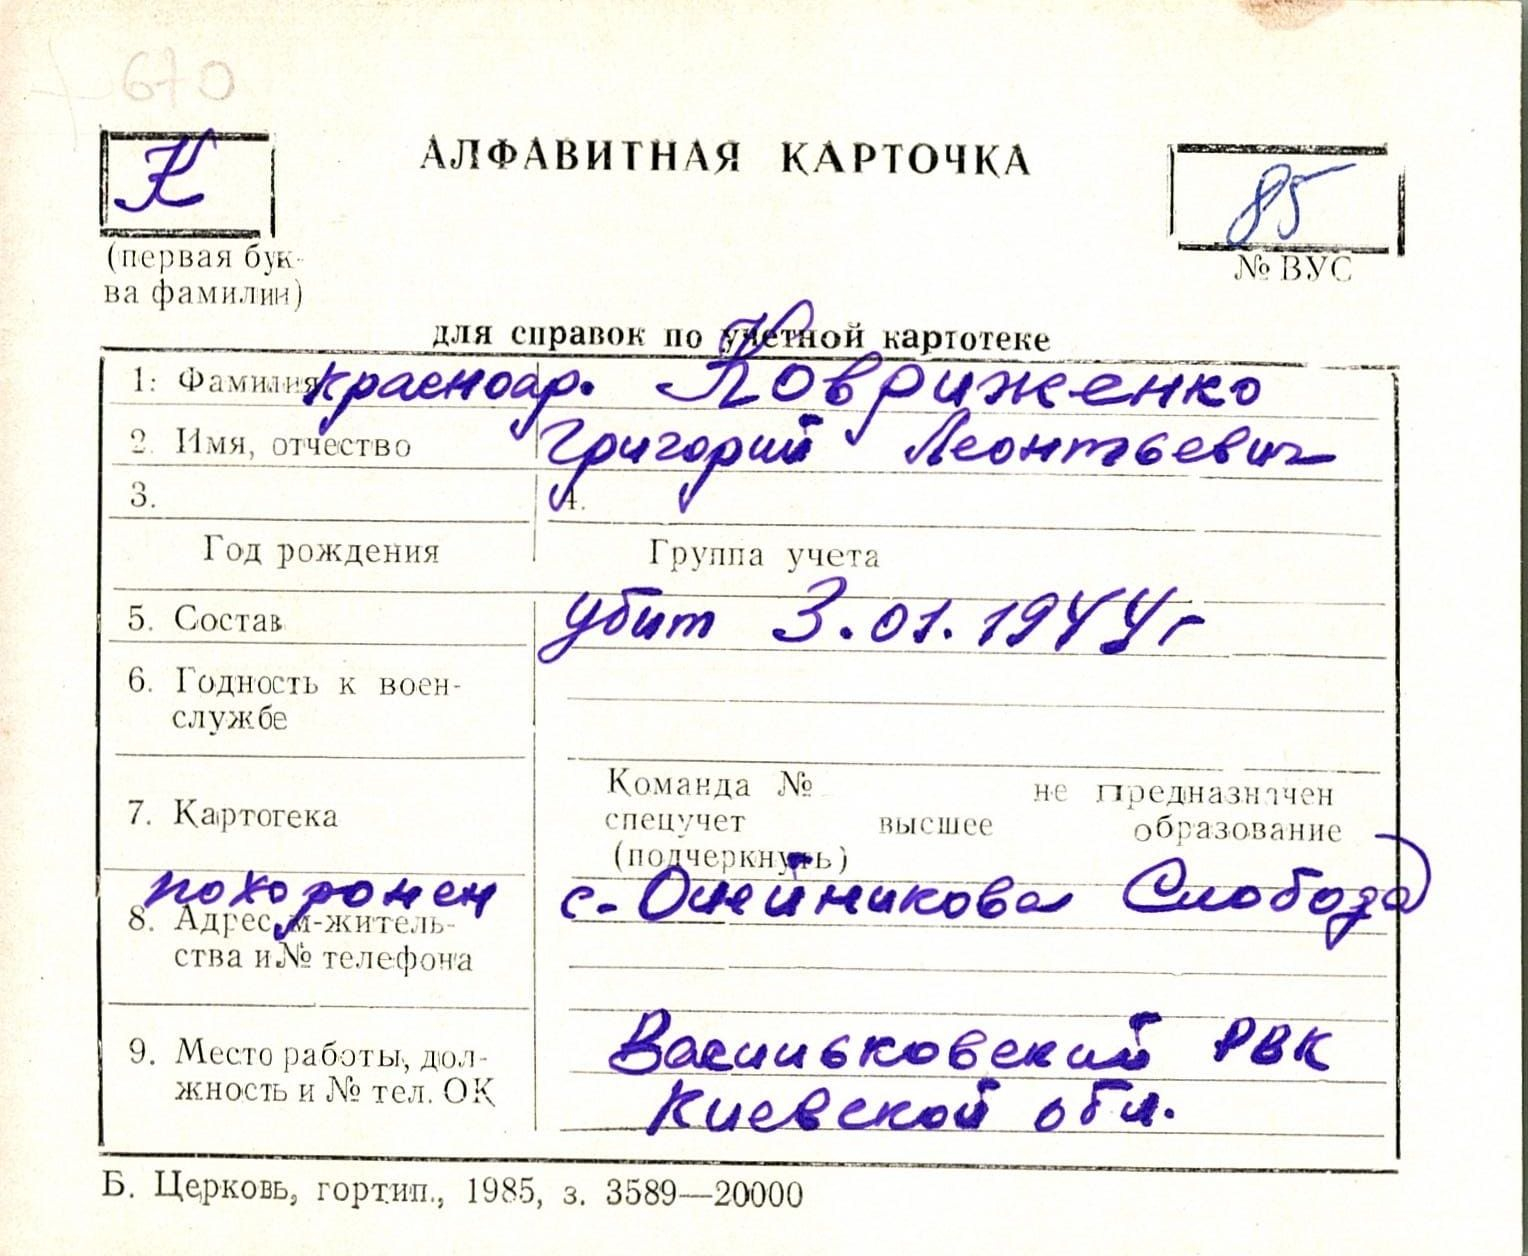 670
К
АЛФАВИТНАЯ КАРТОЧКА
85
(первая бук-
ва фамилии)
№ ВУС
для справок по учетной картотеке
1. Фамилия красноар. Ковриженко
2. Имя, отчество Григорий Леонтьевич
3. 4.
Год рождения Группа учета
5. Состав убит 3.01.1944 г
6. Годность к воен-
службе
Команда № не предназначен
7. Картотека спецучет высшее образование
(подчеркнуть)
похоронен с. Олейникова Слобода
8. Адрес м-житель-
ства и № телефона
9. Место работы, дол- Васильковский РВК
жность и № тел. ОК Киевской обл.
Б. Церковь, гортип., 1985, з. 3589—20000